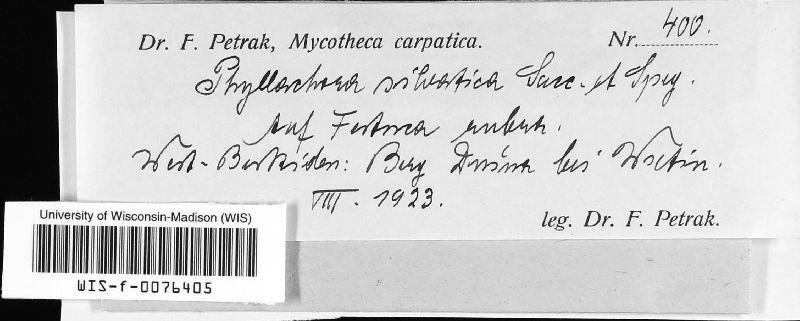 Dr. F. Petrak, Mycotheca carpatica. Nr. 400.
Phyllachora silvatica Sacc. et Speg.
Auf Festuca rubra.
West-Beskiden: Berg bei Wsetin.
VIII. 1923.
leg. Dr. F. Petrak.
University of Wisconsin-Madison (WIS)
WIS-f-0076405